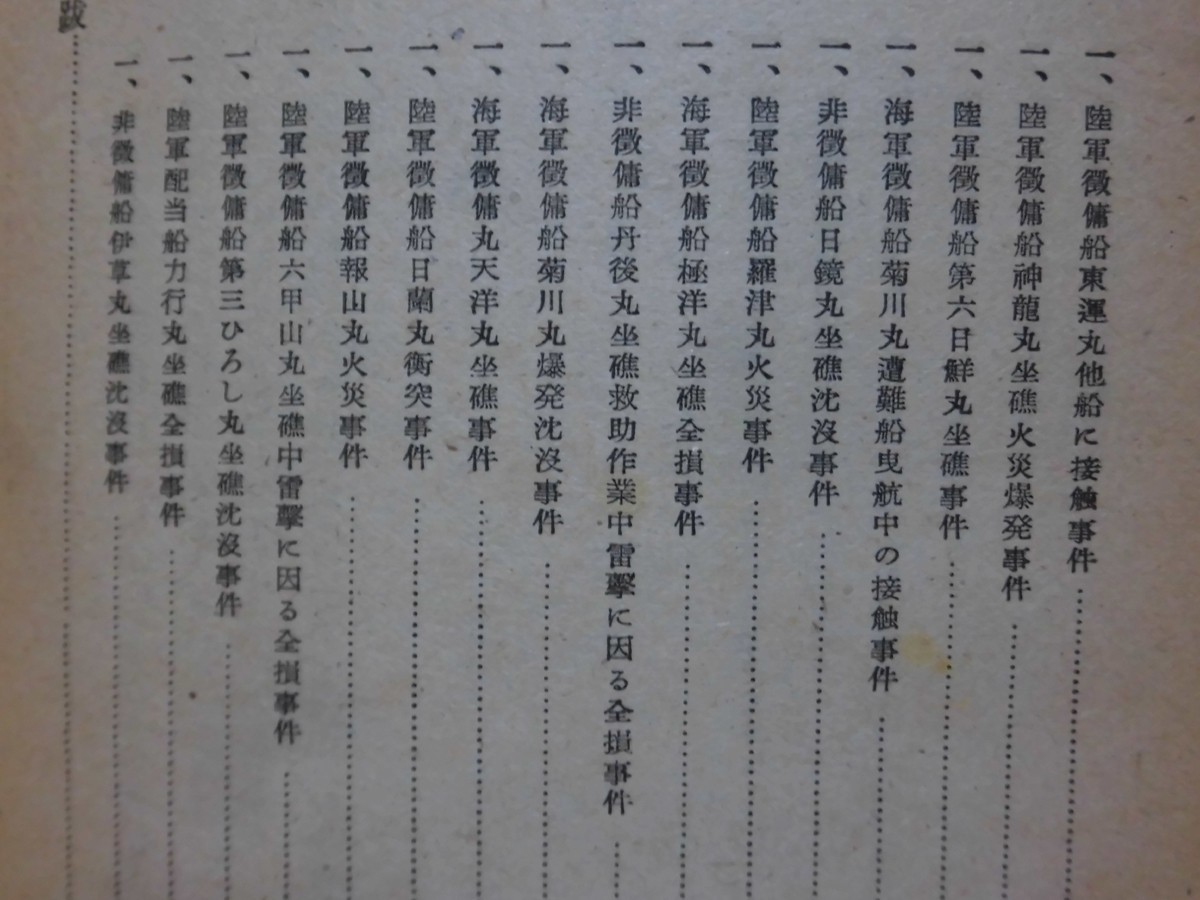 一、陸軍徴傭船東運丸他船に接触事件
一、陸軍徴傭船神龍丸坐礁火災爆発事件
一、陸軍徴傭船第六日鮮丸坐礁事件
一、海軍徴傭船菊川丸遭難船曳航中の接触事件
一、非徴傭船日鏡丸坐礁沈没事件
一、陸軍徴傭船羅津丸火災事件
一、海軍徴傭船極洋丸坐礁全損事件
一、非徴傭船丹後丸坐礁救助作業中雷擊に因る全損事件
一、海軍徴傭船菊川丸爆発沈没事件
一、海軍徴傭丸天洋丸坐礁事件
一、陸軍徴傭船日蘭丸衝突事件
一、陸軍徴傭船報山丸火災事件
一、陸軍徴傭船六甲山丸坐礁中雷擊に因る全損事件
一、陸軍徴傭船第三ひろし丸坐礁沈没事件
一、陸軍配当船力行丸坐礁全損事件
一、非徴傭船伊草丸坐礁沈没事件
跋